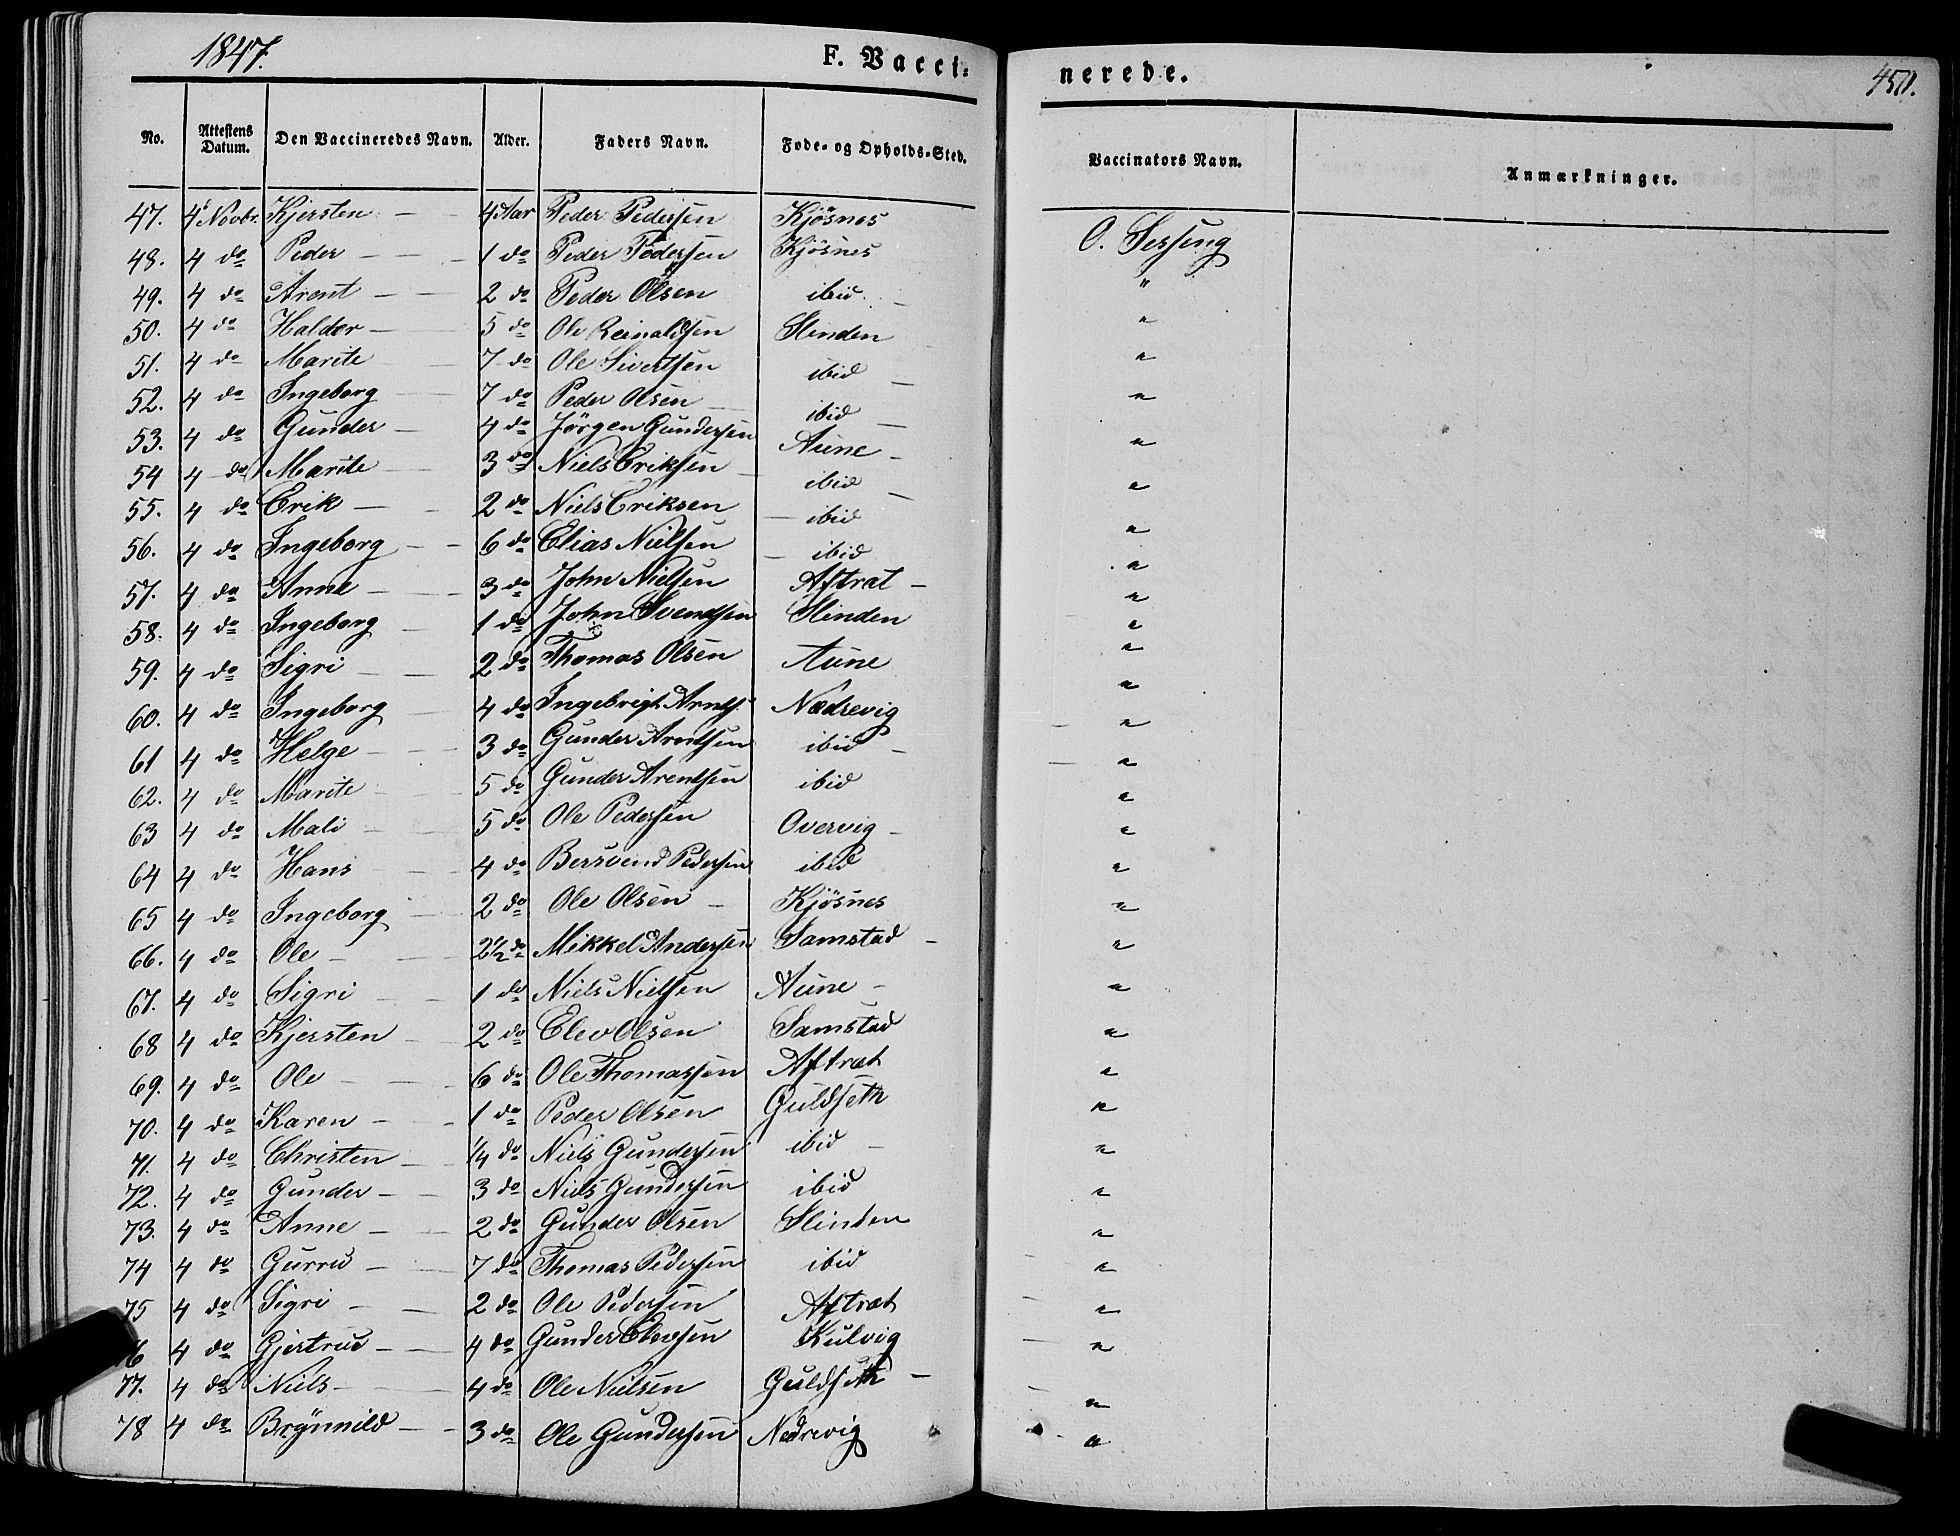 1847.
F. Vacci-
nerede.
No. Attestens Datum. Den Vaccineredes Navn. Alder. Faders Navn. Føde- og Opholds-Sted. Vaccinators Navn. Anmærkninger.
47. 4 Novbr. Kjersten 4 Aar Peder Pedersen Kjösnes O.
48. 4 do Peder 1 do Peder Pedersen Kjösnes "
49. 4 do Arent 2 do Peder Olsen ibid "
50. 4 do Haldor 5 do Ole Reinaldsen Slinden "
51. 4 do Marite 7 do Ole Sivertsen ibid "
52. 4 do Ingeborg 7 do Peder Olsen ibid "
53. 4 do Gunder 4 do Jörgen Gundersen Aune "
54 4 do Marite 3 do Niels Eriksen ibid "
55. 4 do Erik 2 do Niels Eriksen ibid "
56. 4 do Ingeborg 6 do Elias Nielsen ibid "
57. 4 do Anne 3 do John Nielsen Aftrat "
58. 4 do Ingeborg 1 do John Svendsen Slinden "
59. 4 do Sigri 2 do Thomas Olsen Aune "
60. 4 do Ingeborg 4 do Ingebrigt Arnts. Nedrevig "
61 4 do Helge 3 do Gunder Arntsen ibid "
62. 4 do Marite 5 do Gunder Arentsen ibid "
63 4 do Mali 5 do Ole Pedersen Overvig "
64 4 do Hans 4 do Bersvend Pedersen ibid "
65 4 do Ingeborg 2 do Ole Olsen Kjösnes "
66. 4 do Ole 2 1/2 do Mikkel Andersen Samstad "
67. 4 do Sigri 1 do Niels Nielsen Aune "
68 4 do Kjersten 2 do Elev Olsen Samstad "
69. 4 do Ole 6 do Ole Thomassen Aftrat "
70. 4 do Karen 1 do Peder Olsen Guldseth "
71. 4 do Christen 1/4 do Niels Gundersen ibid "
72. 4 do Gunder 3 do Niels Gundersen ibid "
73. 4 do Anne 2 do Gunder Olsen Slinden "
74 4 do Gurru 7 do Thomas Pedersen ibid "
75 4 do Sigri 2 do Ole Pedersen Aftrat "
6 4 do Gjertrud 4 do Gunder Elevsen Kulvig "
77. 4 do Niels 4 do Ole Nielsen Guldseth "
78 4 do Brynnild 3 do Ole Gundersen Nedrevig "